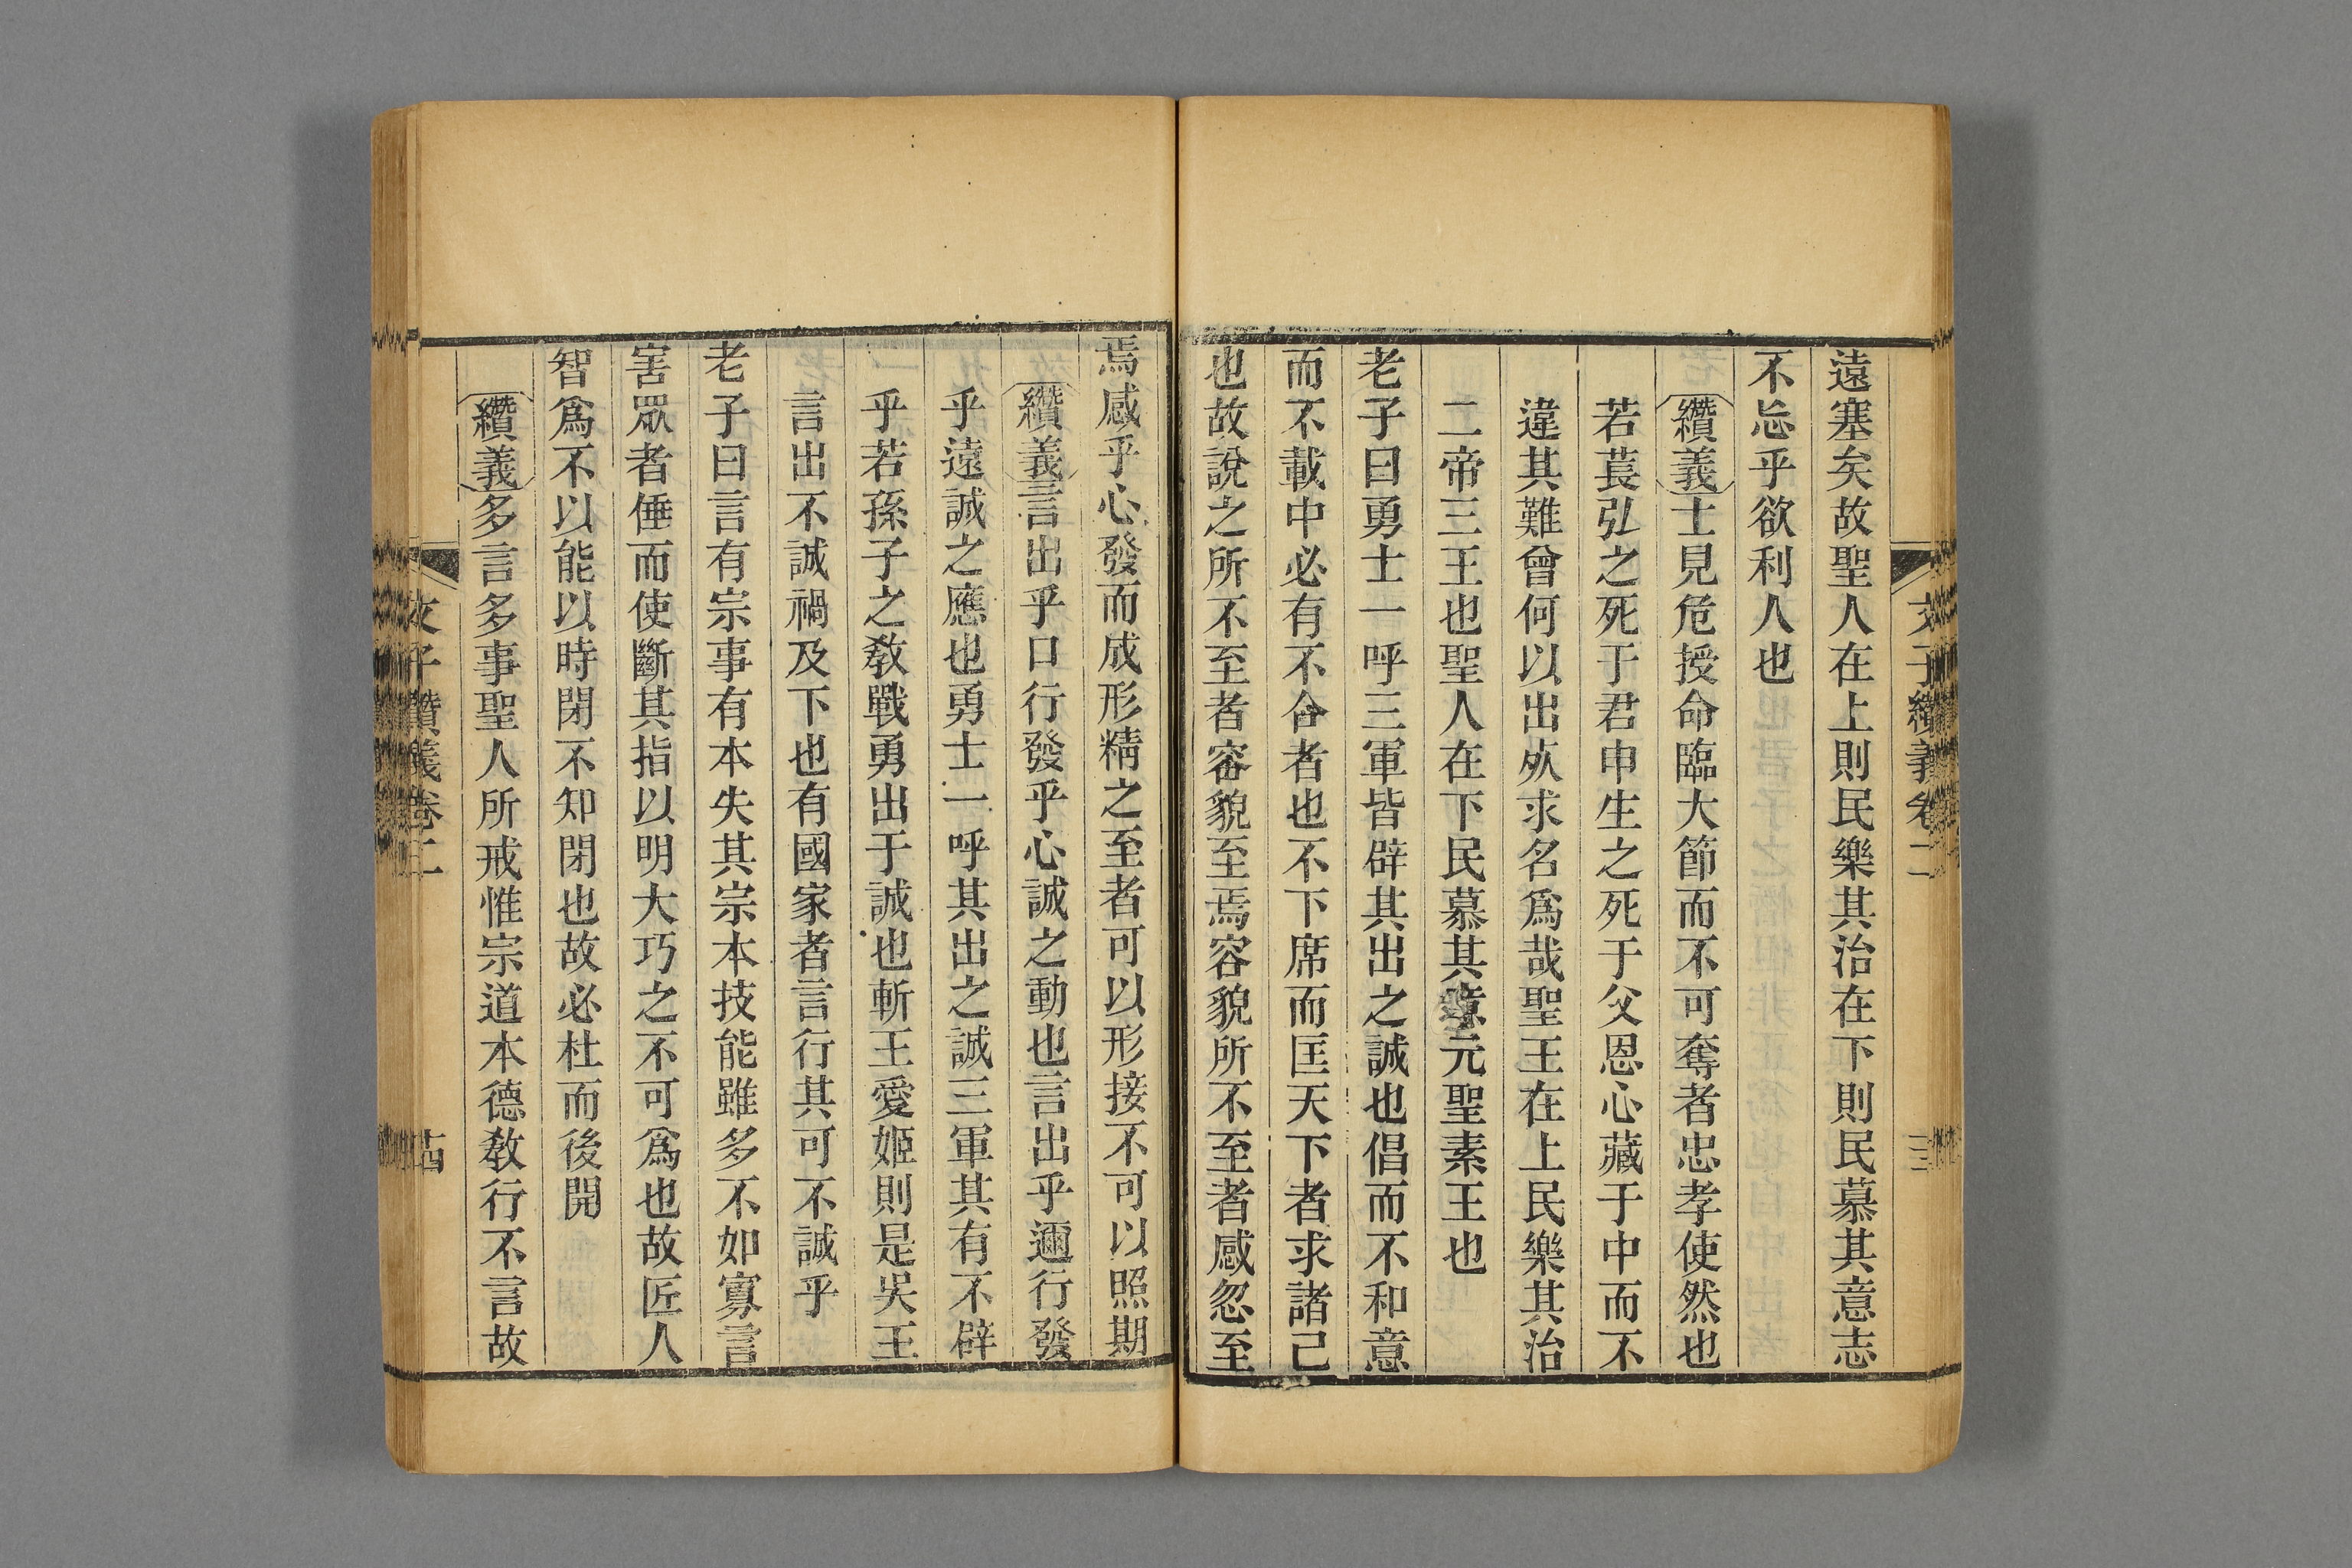 文子纘義卷二
遠塞矣故聖人在上則民樂其治在下則民慕其意志
不忘乎欲利人也
纘義士見危授命臨大節而不可奪者忠孝使然也
若萇弘之死于君申生之死于父恩心藏于中而不
違其難曾何以出㱙求名爲哉聖王在上民樂其治
二帝三王也聖人在下民慕其意元聖素王也
老子曰勇士一呼三軍皆辟其出之誠也倡而不和意
而不載中必有不合者也不下席而匡天下者求諸己
也故說之所不至者容貌至焉容貌所不至者感忽至
焉感乎心發而成形精之至者可以形接不可以照期
纘義言出乎口行發乎心誠之動也言出乎邇行發
乎遠誠之應也勇士一呼其出之誠三軍其有不辟
乎若孫子之教戰勇出于誠也斬王愛姬則是吳王
言出不誠禍及下也有國家者言行其可不誠乎
老子曰言有宗事有本失其宗本技能雖多不如寡言
害眾者倕而使斷其指以明大巧之不可爲也故匠人
智爲不以能以時閉不知閉也故必杜而後開
纘義多言多事聖人所戒惟宗道本德教行不言故
文子纘義卷二
十四